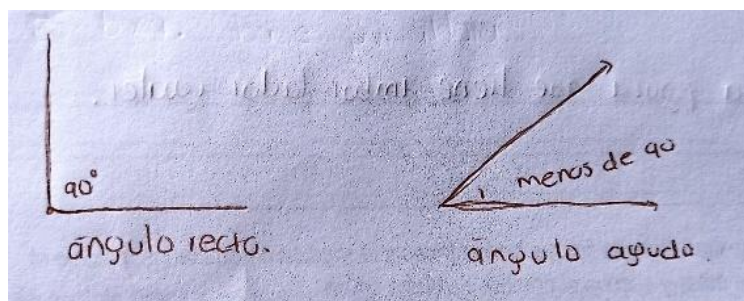 90°
ángulo recto.
menos de 90
ángulo agudo.